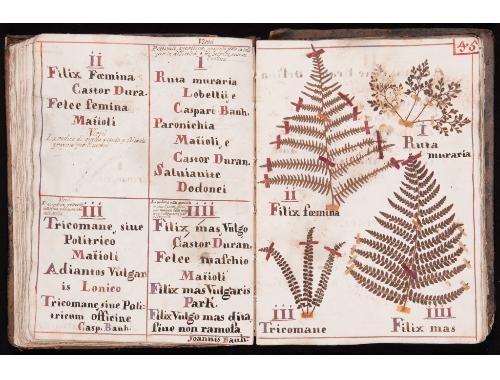 ii
Filix Fœmina
Castor Dura.
Felce femina
Matioli
Virtù
I
Ruta muraria
Lobelij e
Caspari Bauh.
Paronichia
Matioli, e
Castor Duran.
Saluiauitæ
Dodonei
III
Tricomane, siue
Politrico
Matioli
Adiantos Vulgar
is Lonico
Tricomane, siue Poli
tricum officine
Casp. Bauh.
IIII
Filix mas, Vulgo
Castor Duran.
Felce maschio
Matioli
Filix mas Vulgaris
Park.
Filix Vulgo mas dita,
siue non ramosa
Joannis Bauh.
45
I
Ruta
muraria
ii
Filix fœmina
iii
Tricomane
IIII
Filix mas